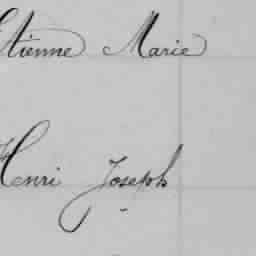 Etienne Marie
Henri Joseph